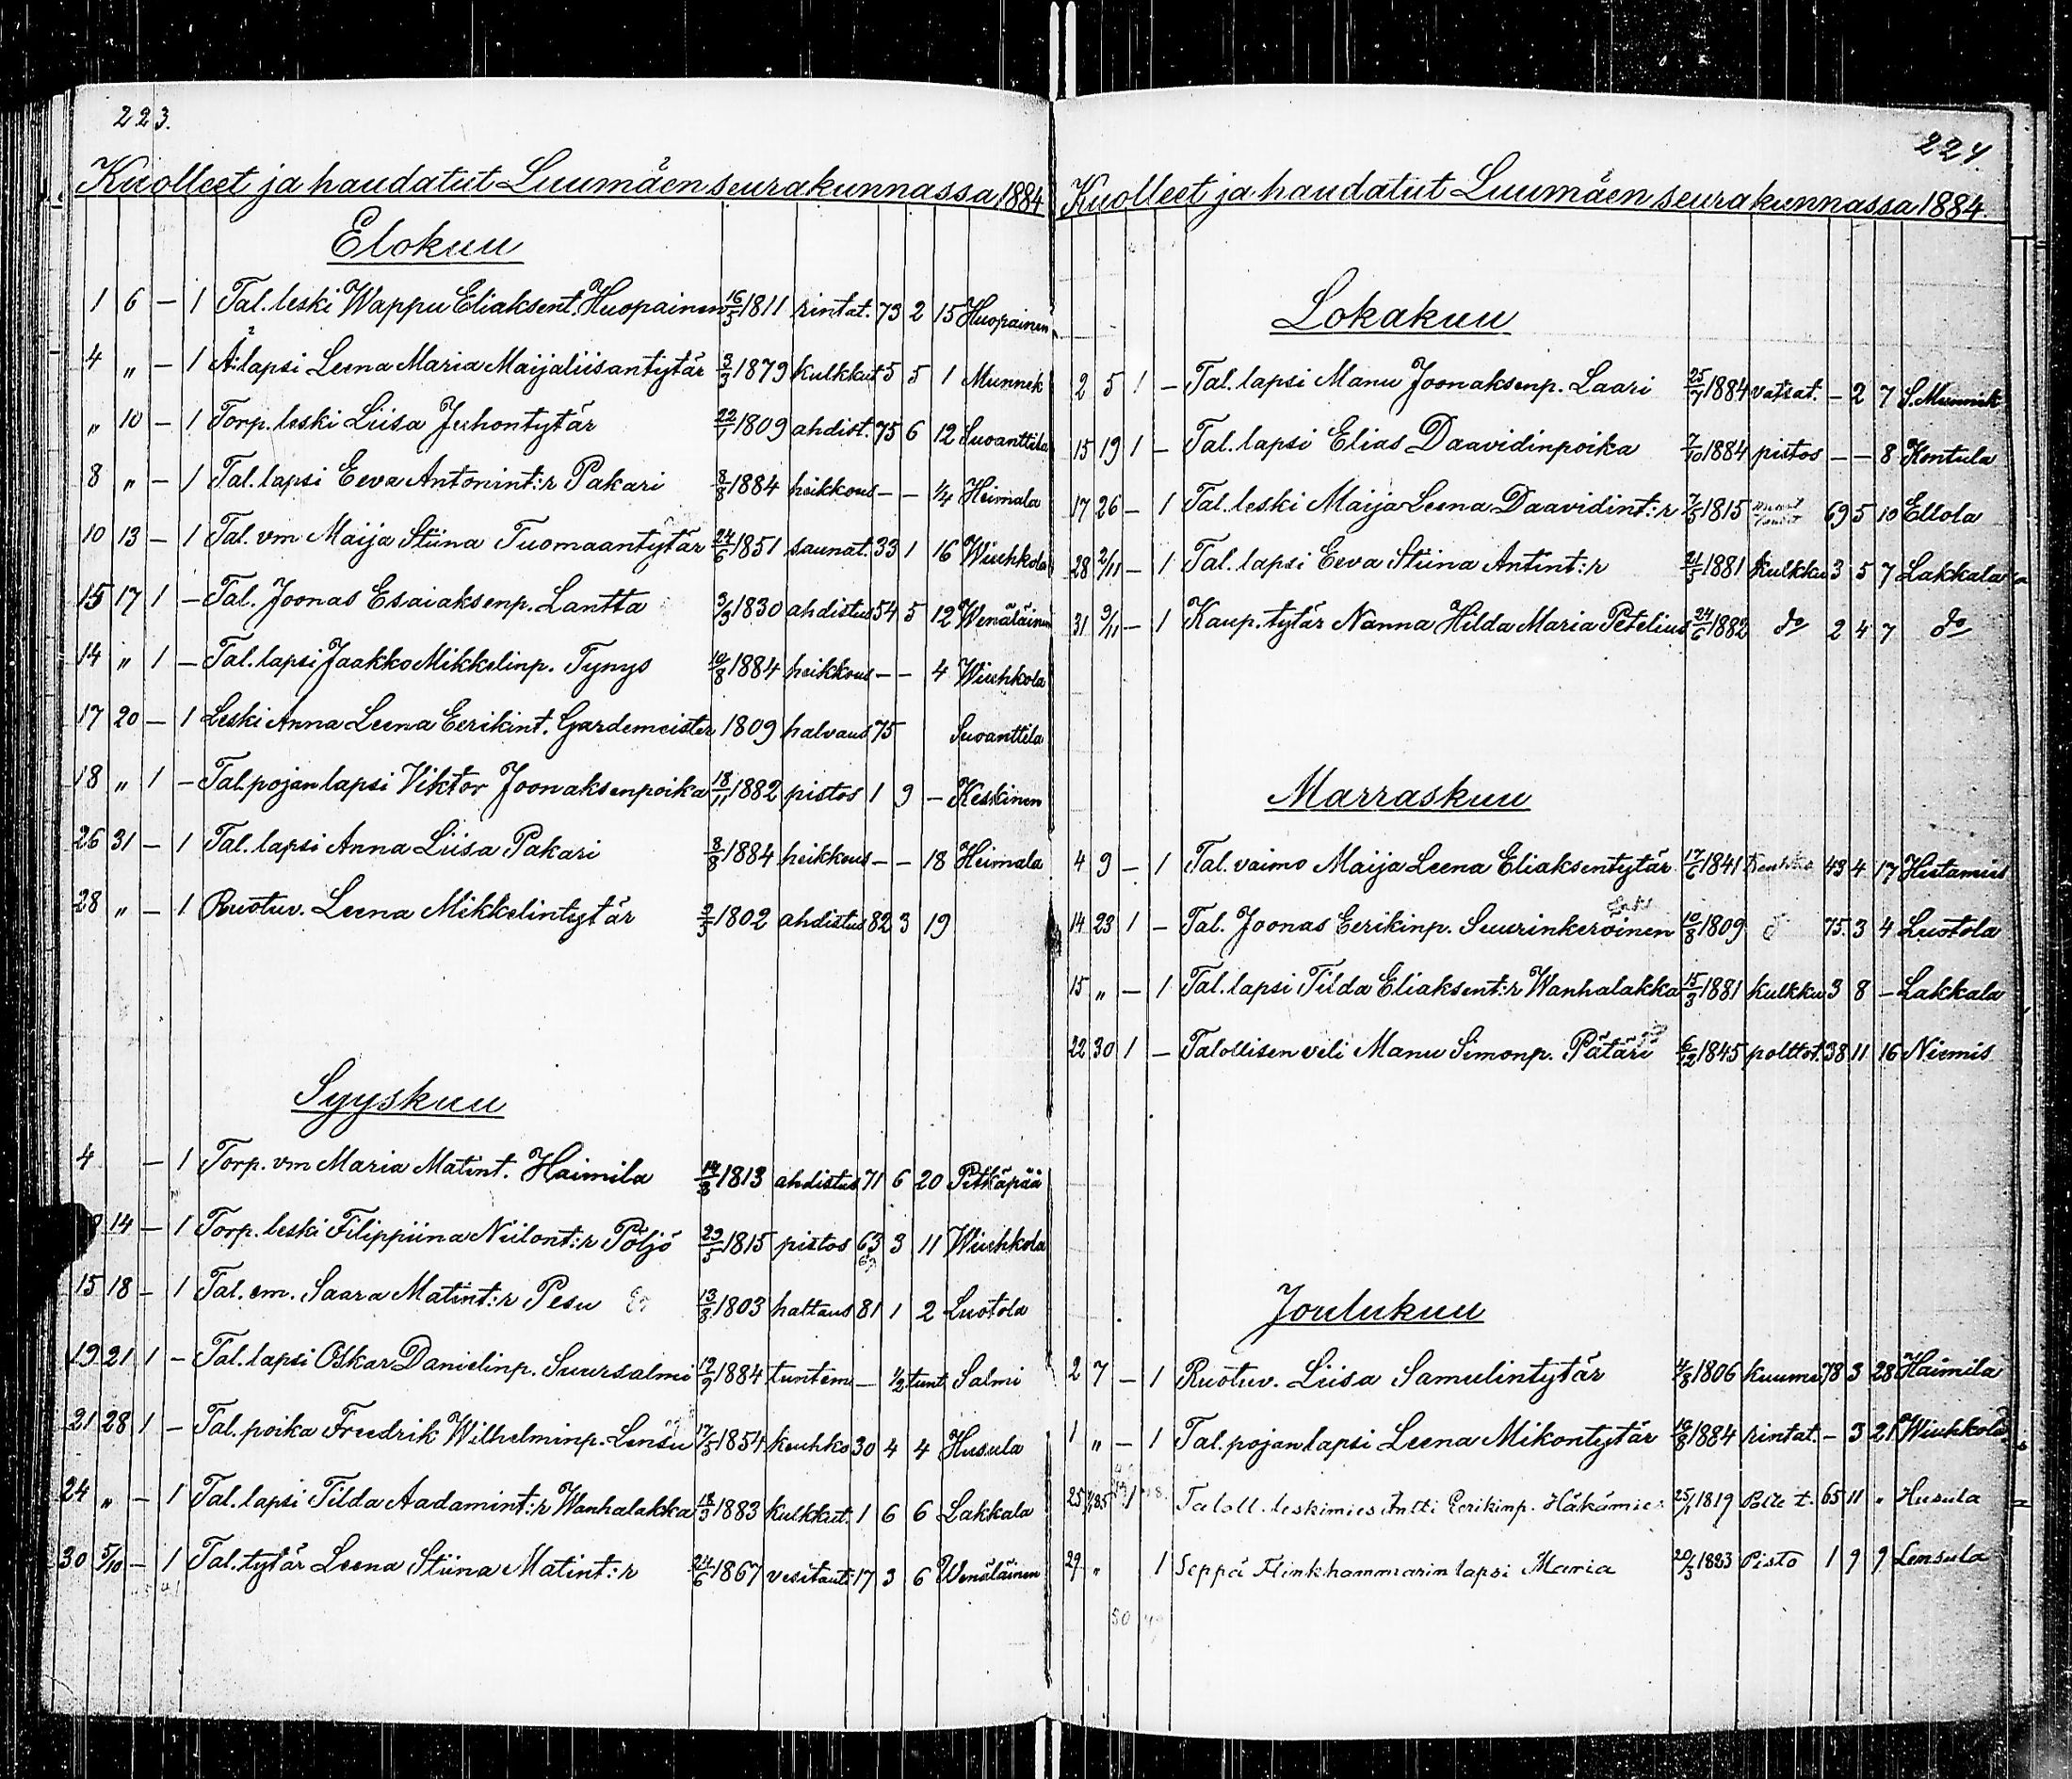 223.
Kuolleet ja haudatut Luumäen seurakunnassa 1884
Elokuu
1 6 — 1 Tal. leski Wappu Eliaksent. Huopainen 16/5 1811 rintat. 73 2 15 Huopainen
4 " — 1 Ä:lapsi Leena Maria Maijaliisantytär 3/3 1879 kulkkut 5 5 1 Munnek
" 10 — 1 Torp. leski Liisa Juhontytär 22/1 1809 ahdist. 75 6 12 Suoanttila
8 " — 1 Tal. lapsi Eeva Antonint:r Pakari 8/8 1884 heikkous — — 1/4 Heimala
10 13 — 1 Tal. vm Maija Stiina Tuomaantytär 24/6 1851 saunat. 33 1 16 Wiuhkola
15 17 1 — Tal. Joonas Esaiaksenp. Lantta 3/3 1830 ahdistus 54 5 12 Wenäläinen
14 " 1 — Tal. lapsi Jaakko Mikkelinp. Tynys 10/8 1884 heikkous — — 4 Wiuhkola
17 20 — 1 Leski Anna Leena Eerikint. Gardemeister 1809 halvaus 75 Suoanttila
18 " 1 — Tal. pojan lapsi Viktor Joonaksenpoika 18/11 1882 pistos 1 9 — Keskinen
26 31 — 1 Tal. lapsi Anna Liisa Pakari 8/8 1884 heikkous — — 18 Heimala
28 " — 1 Ruotuv. Leena Mikkelintytär 1802 ahdistus 82 3 19
Syyskuu
4 — 1 Torp. vm Maria Matint. Haimila 1813 ahdistus 71 6 20 Pitkäpää
14 — 1 Torp. leski Filippiina Niilont:r Pöljö 29/5 1815 pistos 63 3 11 Wiuhkola
15 18 — 1 Tal. em. Saara Matint:r Pesu 13/8 1803 haltaus 81 1 2 Luotola
19 21 1 — Tal. lapsi Oskar Danielinp. Suursalmi 12/9 1884 tuntem — 1/2 tunt Salmi
21 28 1 — Tal. poika Fredrik Wilhelminp. Lensu 17/5 1854 keuhko 30 4 4 Husula
24 " — 1 Tal. lapsi Tilda Aadamint:r Wanhalakka 18/3 1883 kulkkut. 1 6 6 Lakkala
30 5/10 — 1 Tal. tytär Leena Stiina Matint:r 24/6 1867 vesitauti 17 3 6 Wenäläinen
224.
Kuolleet ja haudatut Luumäen seurakunnassa 1884.
Lokakuu
2 5 1 — Tal. lapsi Manu Joonaksenp. Laari 25/7 1884 vatsat. — 2 7 S. Munnik
15 19 1 — Tal. lapsi Elias Daavidinpoika 7/10 1884 pistos — — 8 Kontula
17 26 — 1 Tal. leski Maija Leena Daavidint:r 7/5 1815 69 5 10 Ellola
28 2/11 — 1 Tal. lapsi Eeva Stiina Antint:r 21/5 1881 kulkku 3 5 7 Lakkala
31 9/11 — 1 Kaup. tytär Nanna Hilda Maria Petelius 24/6 1882 do 2 4 7 do
Marraskuu
4 9 — 1 Tal. vaimo Maija Leena Eliaksentytär 17/6 1841 43 4 17 Hietamies
14 23 1 — Tal. Joonas Eerikinp. Suurinkeroinen 10/8 1809 75. 3 4 Luotola
15 " — 1 Tal. lapsi Tilda Eliaksent:r Wanhalakka 15/3 1881 kulkku 3 8 — Lakkala
22 30 1 — Talollisen veli Manu Simonp. Pätäri 6/12 1845 polttot. 38 11 16 Niemis
Joulukuu
2 7 — 1 Ruotuv. Liisa Samulintytär 4/8 1806 kuume 78 3 28 Haimila
1 " — 1 Tal. pojan lapsi Leena Mikontytär 10/8 1884 rintat. — 3 21 Wiuhkola
25 1 Taloll. leskimies Antti Eerikinp. Häkämies 25/1 1819 Polte t. 65 11 " Husula
29 " 1 Seppä Flinkhammarin lapsi Maria 20/3 1883 Pisto 1 9 9 Lensula
50